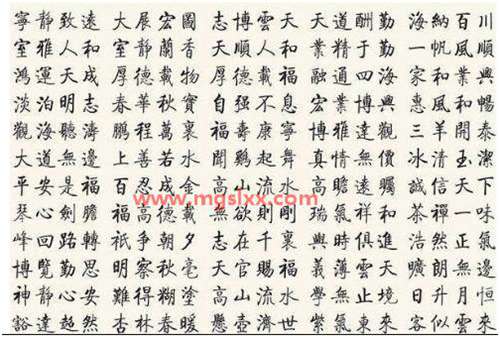 寧靜致遠 大展宏圖 志博雲天 天道酬勤 海納百川
室雅人和 室靜蘭香 順人和 精于勤 一帆風順
鴻運天成 厚德載物 厚德載福 融通四海 家和業興
淡泊明志 春華秋實 自强不息 宏 興 惠風和暢
觀海聽濤 鵬程萬裏 福壽康寧 博雅達觀 三羊開泰
大道無邊 上善若水 聞鷄起舞 真情無價 冰清玉潔
平安是福 百忍成金 高山流水 高瞻遠矚 誠信天下
www.mgslxx.com
琴心劍膽 高德載 無欲則剛 瑞氣祥和 茶禪一味
峰回路轉 祇爭朝夕 志在千裏 與時俱進 浩然正氣
博覽勤思 明察秋毫 天官賜福 義薄雲天 朗 無邊
神靜心安 難得糊塗 高山流水 學無止境 日升月恒
豁達超然 杏林春暖 懸壺濟世 紫氣東來 客似雲來